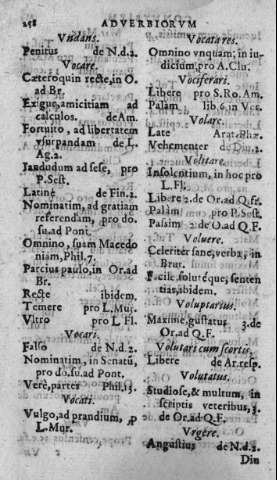 258 ADVERBIORVM
Vndans.
Penitus de N.d.2.
Vocare.
Cæteroquin recte, in O.
ad Br.
Exigue, amicitiam ad
calculos. de Am.
Fortuito, ad libertatem
vsurpandam de L.
Ag.2.
Iandudum ad sese, pro
P. Sest.
Latine de Fin.2.
Nominatim, ad gratiam
referendam, pro do.
su.ad Pont.
Omnino, suam Macedo
niam, Phil.7.
Parcius paulo, in Or.ad
Br.
Recte ibidem.
Temere pro L.Mur.
Vltro pro L Fl.
Vocari.
Falso de N.d.2.
Nominatim, in Senatũ,
pro do.su.ad Pont.
Vere, parter Phil.13.
Vocati.
Vulgo, ad prandium, p
L.Mur.
Vocata res.
Omnino vnquam, in iu-
dicium, pro A.Clu.
Vociferari.
Libere pro S.Ro.Am.
Palàm lib.6.in Ver.
Volare.
Late Arat. Phæ.
Vehementer de Diu.2.
Volitare.
Insolentium, in hoc pro
L.Fl.
Libere 2.de Or.ad Q.fr.
Palàm pro P.Sest.
Passim 2.de O.ad Q.F.
Voluere.
Celeriter sane, verba, in
Brut.
Facile, soluteque, senten
tias, ibidem.
Voluptarius.
Maxime, gustatus 3.de
Or.ad Q.F.
Volutari cum scortis.
Libere de Ar.resp.
Volutatus.
Studiose, & multum, in
scriptis veteribus, 3.
de Or.ad Q.F.
Vrgere.
Angustius de N.d.2.
Diu